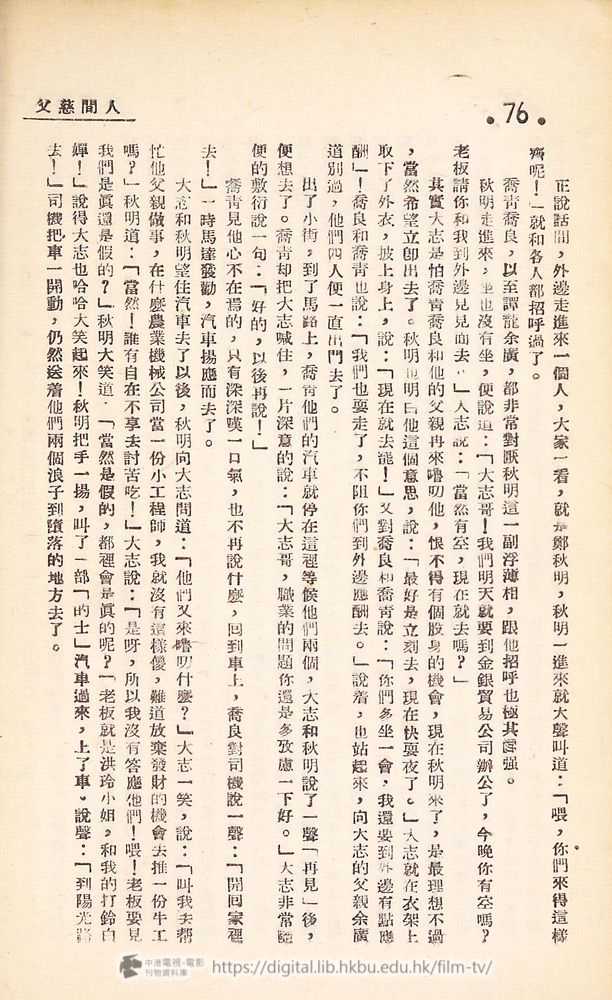 人間慈父
•76•
正說話間，外邊走進來一個人，大家一看，就是鄭秋明，秋明一進來就大聲叫道：「喂，你們來得這樣
齊呢！」就和各人都招呼過了。
喬青喬良，以至譚龍余廣，都非常對厭秋明這一副浮薄相，跟他招呼也極其勉强。
秋明走進來，坐也沒有坐，便說道：「大志哥！我們明天就要到金銀貿易公司辦公了，今晚你有空嗎？
老板請你和我到外邊見見面去。」大志說：「當然有空，現在就去嗎？」
其實大志是怕喬青喬良和他的父親再來嚕叨他，恨不得有個脫身的機會，現在秋明來了，是最理想不過
，當然希望立卽出去了。秋明也明白他這個意思，說：「最好是立刻去，現在快要夜了。」大志就在衣架上
取下了外衣，披上身上，說：「現在就去罷！」又對喬良和喬青說：「你們多坐一會，我還要到外邊有點應
酬」！喬良和喬青也說：「我們也要走了，不阻你們到外邊應酬去。」說着，也站起來，向大志的父親余廣
道別過，他們四人便一直出門去了。
出了小街，到了馬路上，喬青他們的汽車就停在這裡等候他們兩個，大志和秋明說了一聲「再見」後，
便想去了。喬青却把大志喊住，一片深意的說：「大志哥，職業的問題你還是多攷慮一下好。」大志非常隨
便的敷衍說一句：「好的，以後再說！」
喬青見他心不在焉的，只有深深嘆一口氣，也不再說什麼，回到車上，喬良對司機說一聲：「開回家裡
去！」一時馬達發動，汽車揚塵而去了。
大志和秋明望住汽車去了以後，秋明向大志問道：「他們又來嚕叨什麼？」大志一笑，說：「叫我去幫
忙他父親做事，在什麼農業機械公司當一份小工程師，我就沒有這樣傻，難道放棄發財的機會去推一份牛工
嗎？」秋明道：「當然！誰有自在不享去討苦吃！」大志說：「是呀，所以我沒有答應他們！喂！老板要見
我們是眞還是假的？」秋明大笑道：「當然是假的，都裡會是眞的呢？「老板就是洪玲小姐，和我的打鈴白
嬋！」說得大志也哈哈大笑起來！秋明把手一揚，叫了一部「的士」汽車過來，上了車。說聲：「到陽光路
去！」司機把車一開動，仍然送着他們兩個浪子到墮落的地方去了。
中港電視·電影
刊物資料庫
https://digital.lib.hkbu.edu.hk/film-tv/